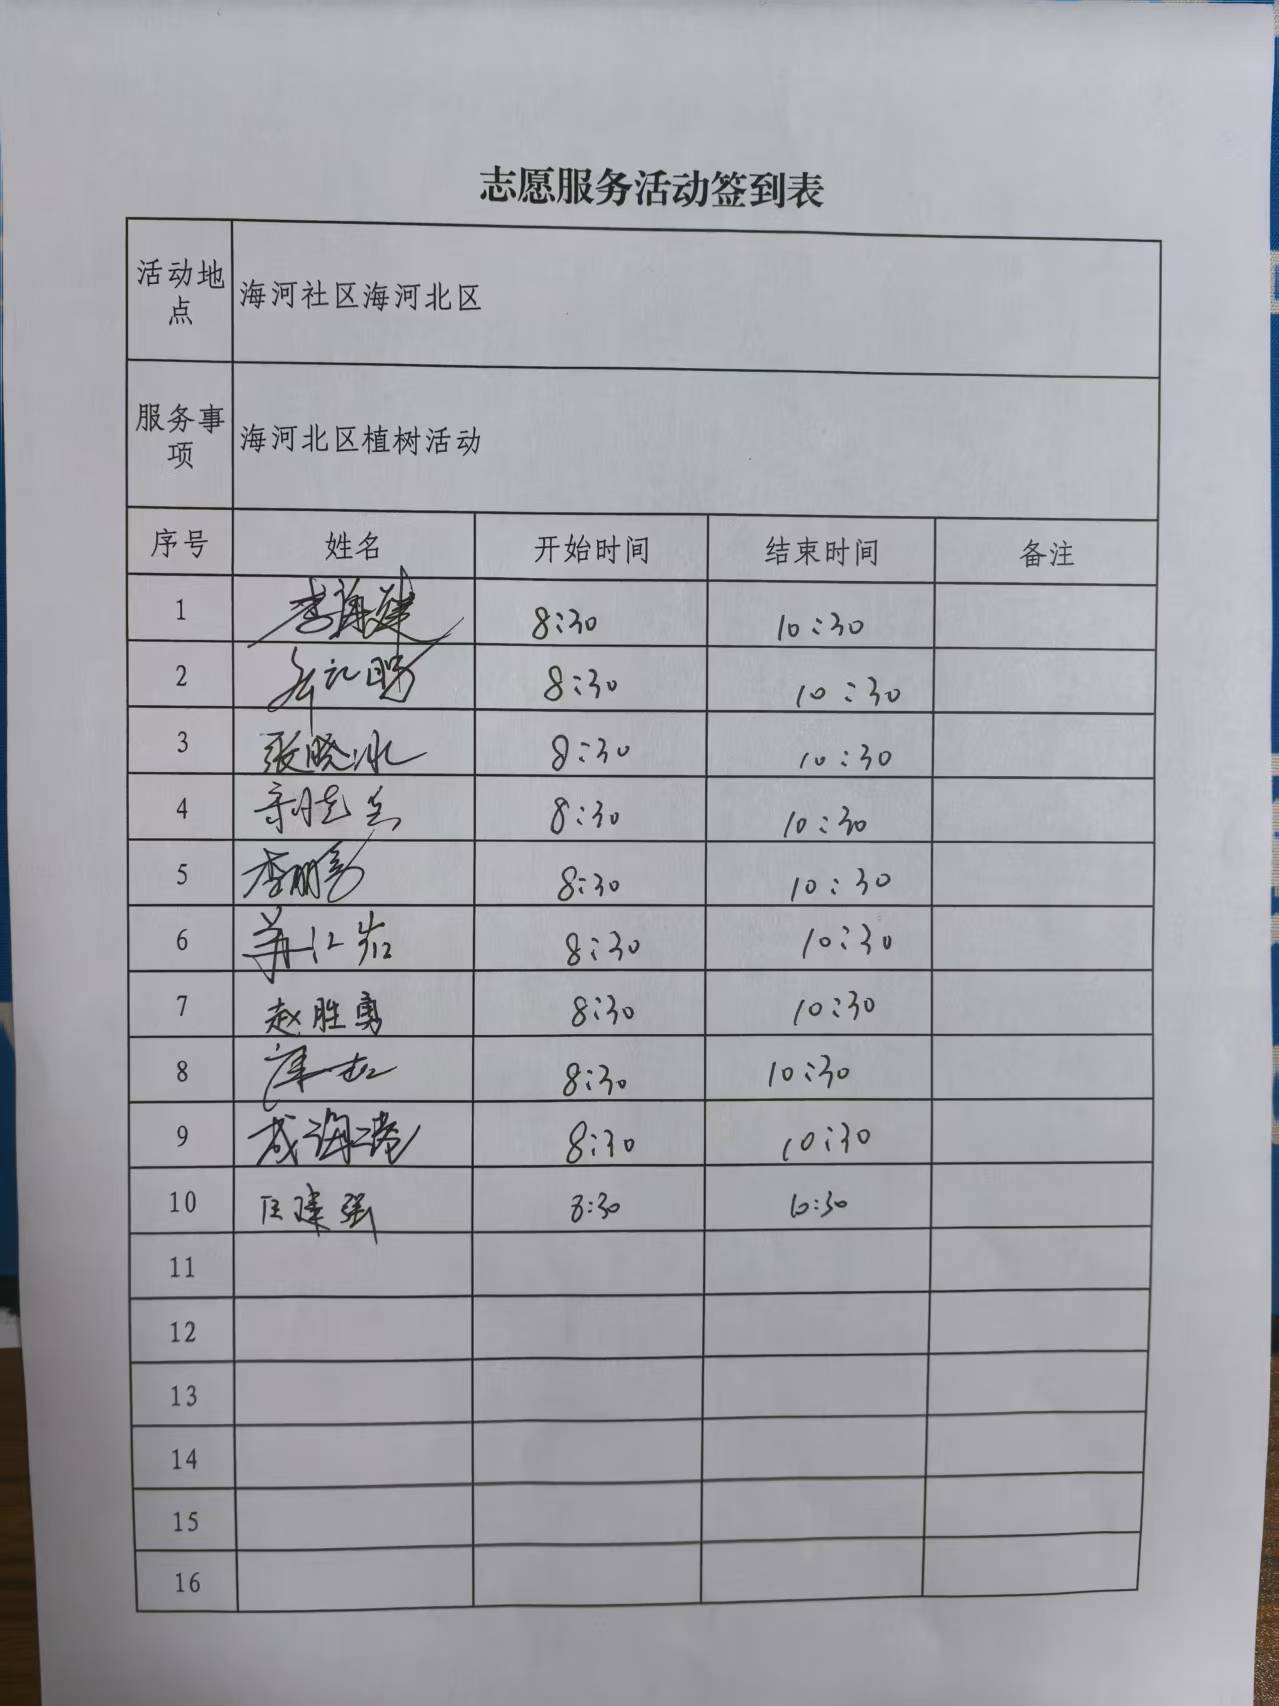 志愿服务活动签到表
活动地点 海河社区海河北区
服务事项 海河北区植树活动
序号 姓名 开始时间 结束时间 备注
1 李海建 8:30 10:30
2 8:30 10:30
3 张晓冰 8:30 10:30
4 8:30 10:30
5 李鹏 8:30 10:30
6 8:30 10:30
7 赵胜勇 8:30 10:30
8 8:30 10:30
9 成海港 8:30 10:30
10 建强 8:30 10:30
11
12
13
14
15
16